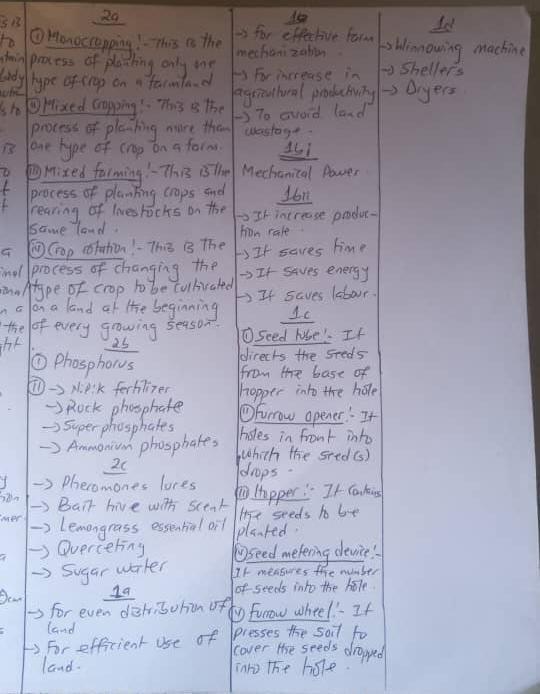 2a
(i) Monocropping!- This is the
process of planting only one
type of crop on a farmland
(ii) Mixed Cropping!- This is the
process of planting more than
one type of crop on a farm.
(iii) Mixed farming!- This is the
process of planting crops and
rearing of livestocks on the
same land.
(iv) Crop rotation!- This is the
process of changing the
type of crop to be cultivated
on a land at the beginning
of every growing season.
2b
(i) Phosphorus
(ii) → N:P:K fertilizer
→ Rock phosphate
→ Super phosphates
→ Ammonium phosphates
2c
→ Pheromones lures
→ Bait hive with scent
→ Lemongrass essential oil
→ Querceting
→ Sugar water
1a
→ for even distribution of
land
→ For efficient use of
land.
1a
→ for effective farm
mechanization.
→ For increase in
agricultural productivity
→ To avoid land
wastage.
1bi
Mechanical Power.
1bii
→ It increase produc-
tion rate.
→ It saves time
→ It saves energy
→ It saves labour.
1c
(i) Seed tube!- It
directs the seeds
from the base of
hopper into the hole
(ii) Furrow opener!- It
holes in front into
which the seed(s)
drops.
(iii) Hopper!- It contains
the seeds to be
planted.
(iv) Seed metering device!-
It measures the number
of seeds into the hole.
(v) Furrow wheel!- It
presses the soil to
cover the seeds dropped
into the hole.
1d
→ Winnowing machine
→ Shellers
→ Dryers